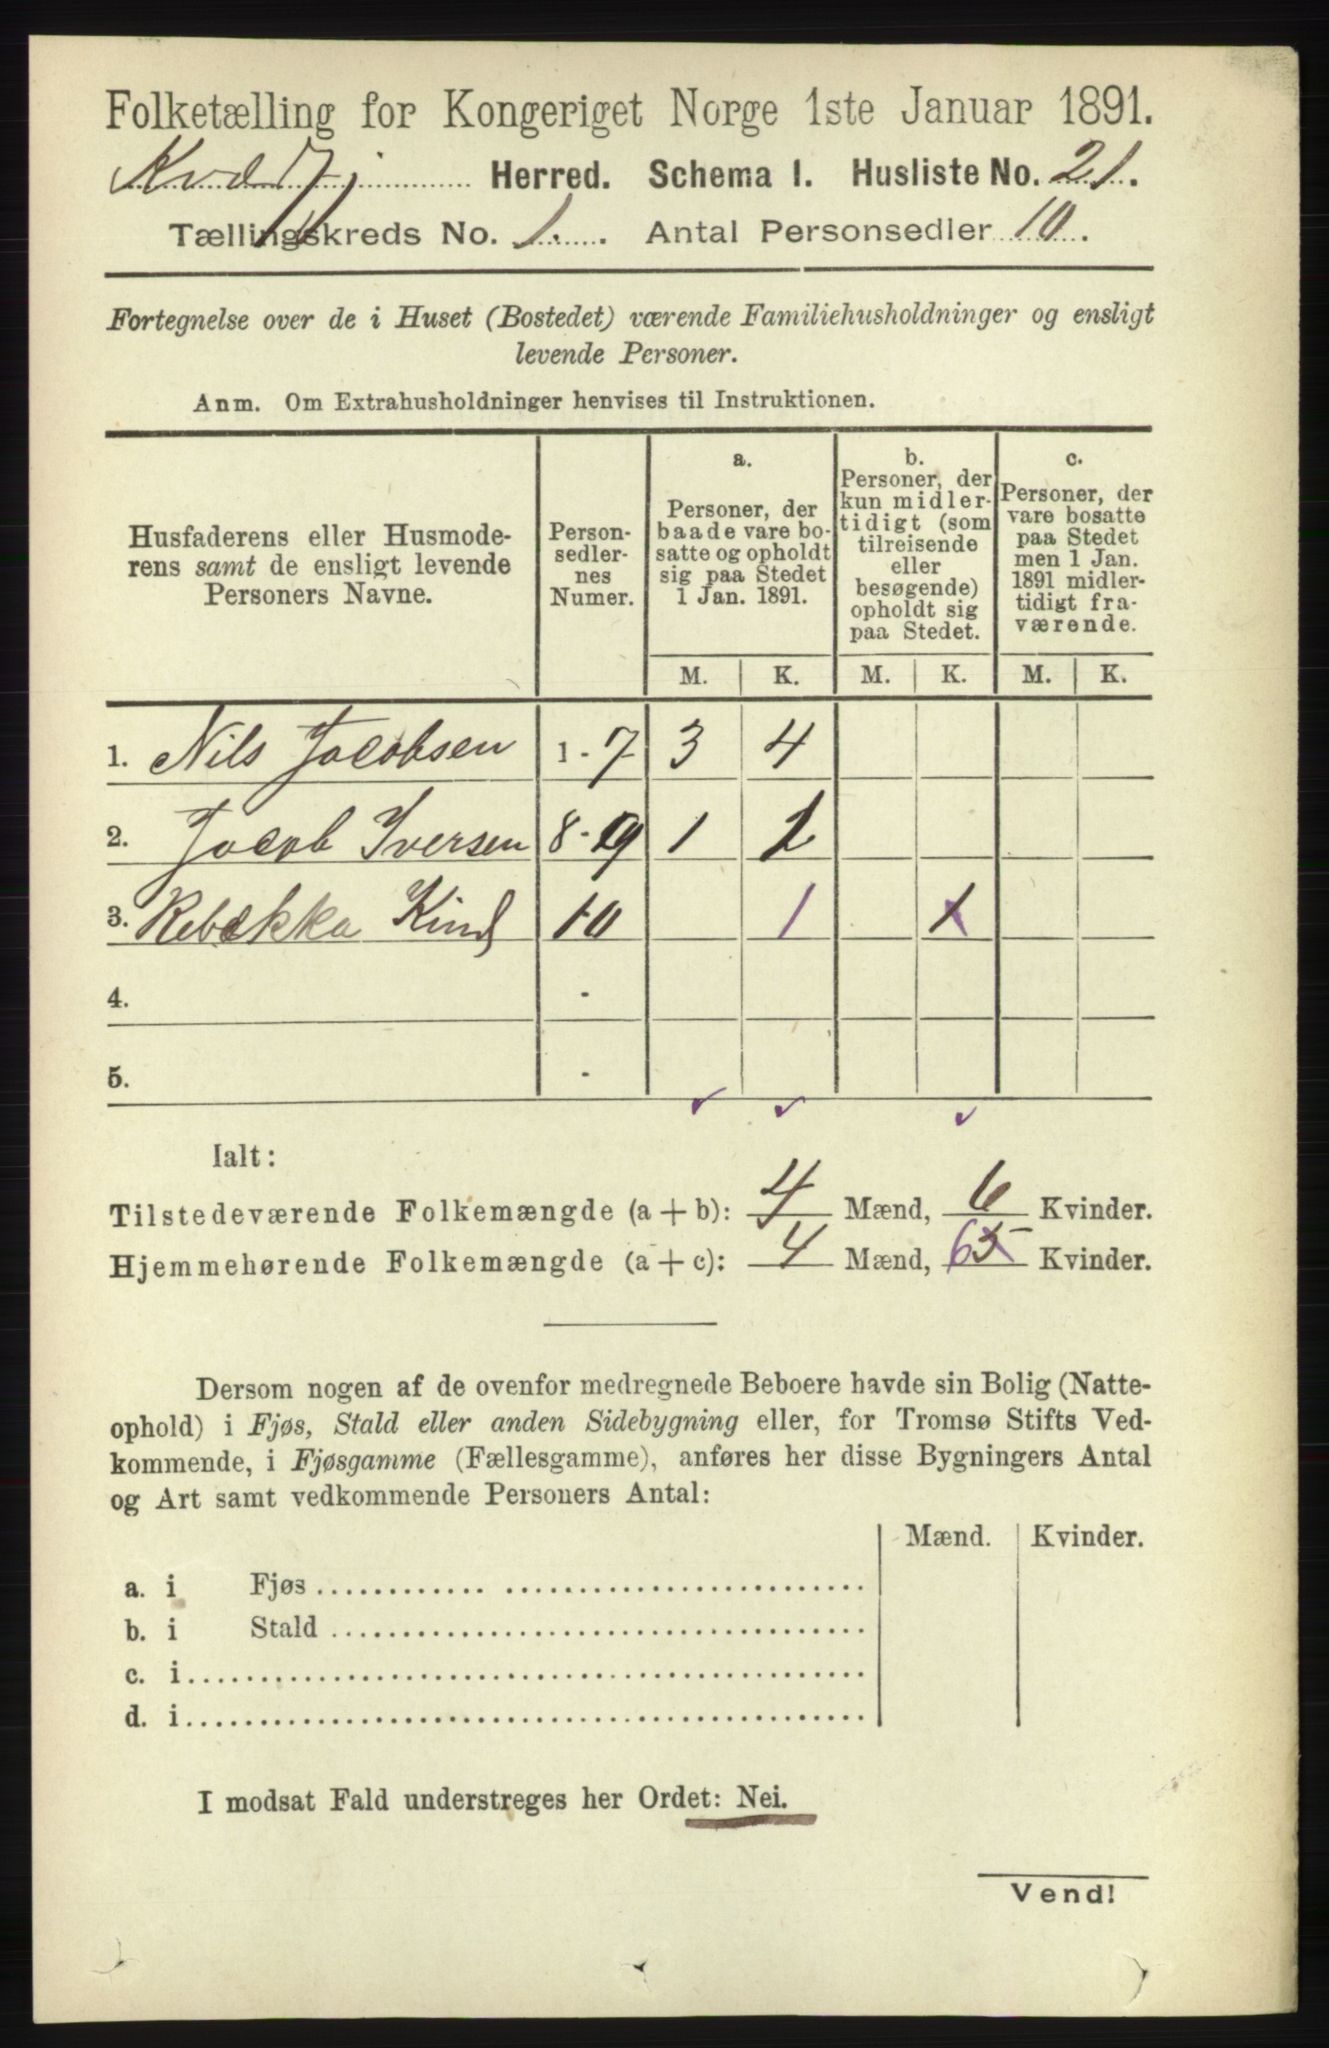 Folketælling for Kongeriget Norge 1ste Januar 1891.
Herred. Schema I. Husliste No. 21.
Tællingskreds No. 1. Antal Personsedler 10.
Fortegnelse over de i Huset (Bostedet) værende Familiehusholdninger og ensligt
levende Personer.
Anm. Om Extrahusholdninger henvises til Instruktionen.
Husfaderens eller Husmode-
rens samt de ensligt levende
Personers Navne.
Person-
sedler-
nes
Numer.
a.
Personer, der
baade vare bo-
satte og opholdt
sig paa Stedet
1 Jan. 1891.
b.
Personer, der
kun midler-
tidigt (som
tilreisende
eller
besøgende)
opholdt sig
paa Stedet.
c.
Personer, der
vare bosatte
paa Stedet
men 1 Jan.
1891 midler-
tidigt fra-
værende.
M. K. M. K. M. K.
1. Nils Jacobsen 1-7 3 4
2. Jacob Iversen 8-9 1 1
3. Rebækka Kind 10 1 1
4. -
5. -
Ialt:
Tilstedeværende Folkemængde (a + b): 4 Mænd, 6 Kvinder.
Hjemmehørende Folkemængde (a + c): 4 Mænd, 6 5 Kvinder.
Dersom nogen af de ovenfor medregnede Beboere havde sin Bolig (Natte-
ophold) i Fjøs, Stald eller anden Sidebygning eller, for Tromsø Stifts Ved-
kommende, i Fjøsgamme (Fællesgamme), anføres her disse Bygningers Antal
og Art samt vedkommende Personers Antal:
Mænd. Kvinder.
a. i Fjøs
b. i Stald
c. i
d. i
I modsat Fald understreges her Ordet: Nei.
Vend!